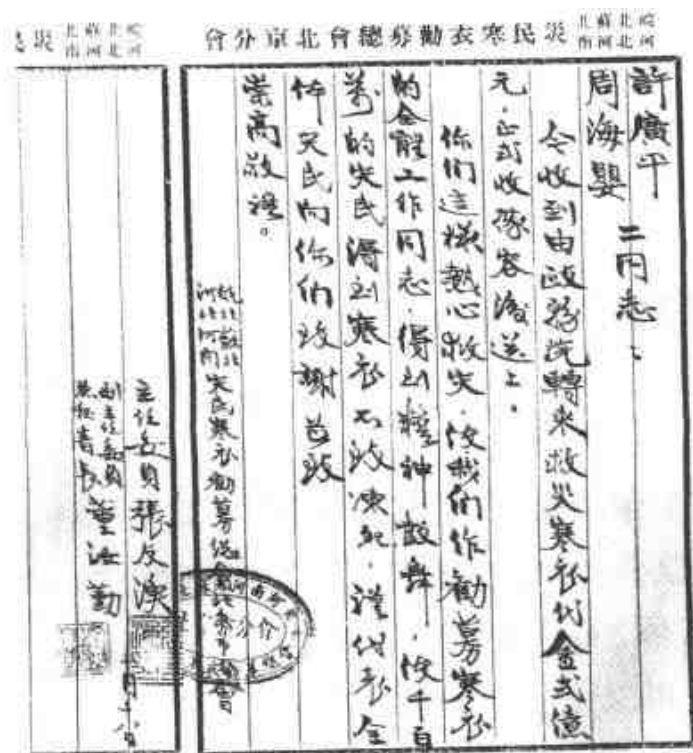 皖北蘇北
河北河南
災民寒衣勸募總會北京分會
許廣平
周海嬰
二同志：
今收到由政務院轉來救災寒衣代金弍億
元．正式收條容後送上．
你們這樣熱心救災．使我們作勸募寒衣
的全體工作同志．得到精神鼓舞．使千百
萬的災民得到寒衣不致凍死．謹代表全
体災民向你们致謝並致
崇高敬禮。
皖北蘇北
河北河南
災民寒衣勸募總會北京市分會
皖北蘇北
河北河南
災
主任委員 張友漁
副主任委員
兼秘書長
董汝勤
月十八日